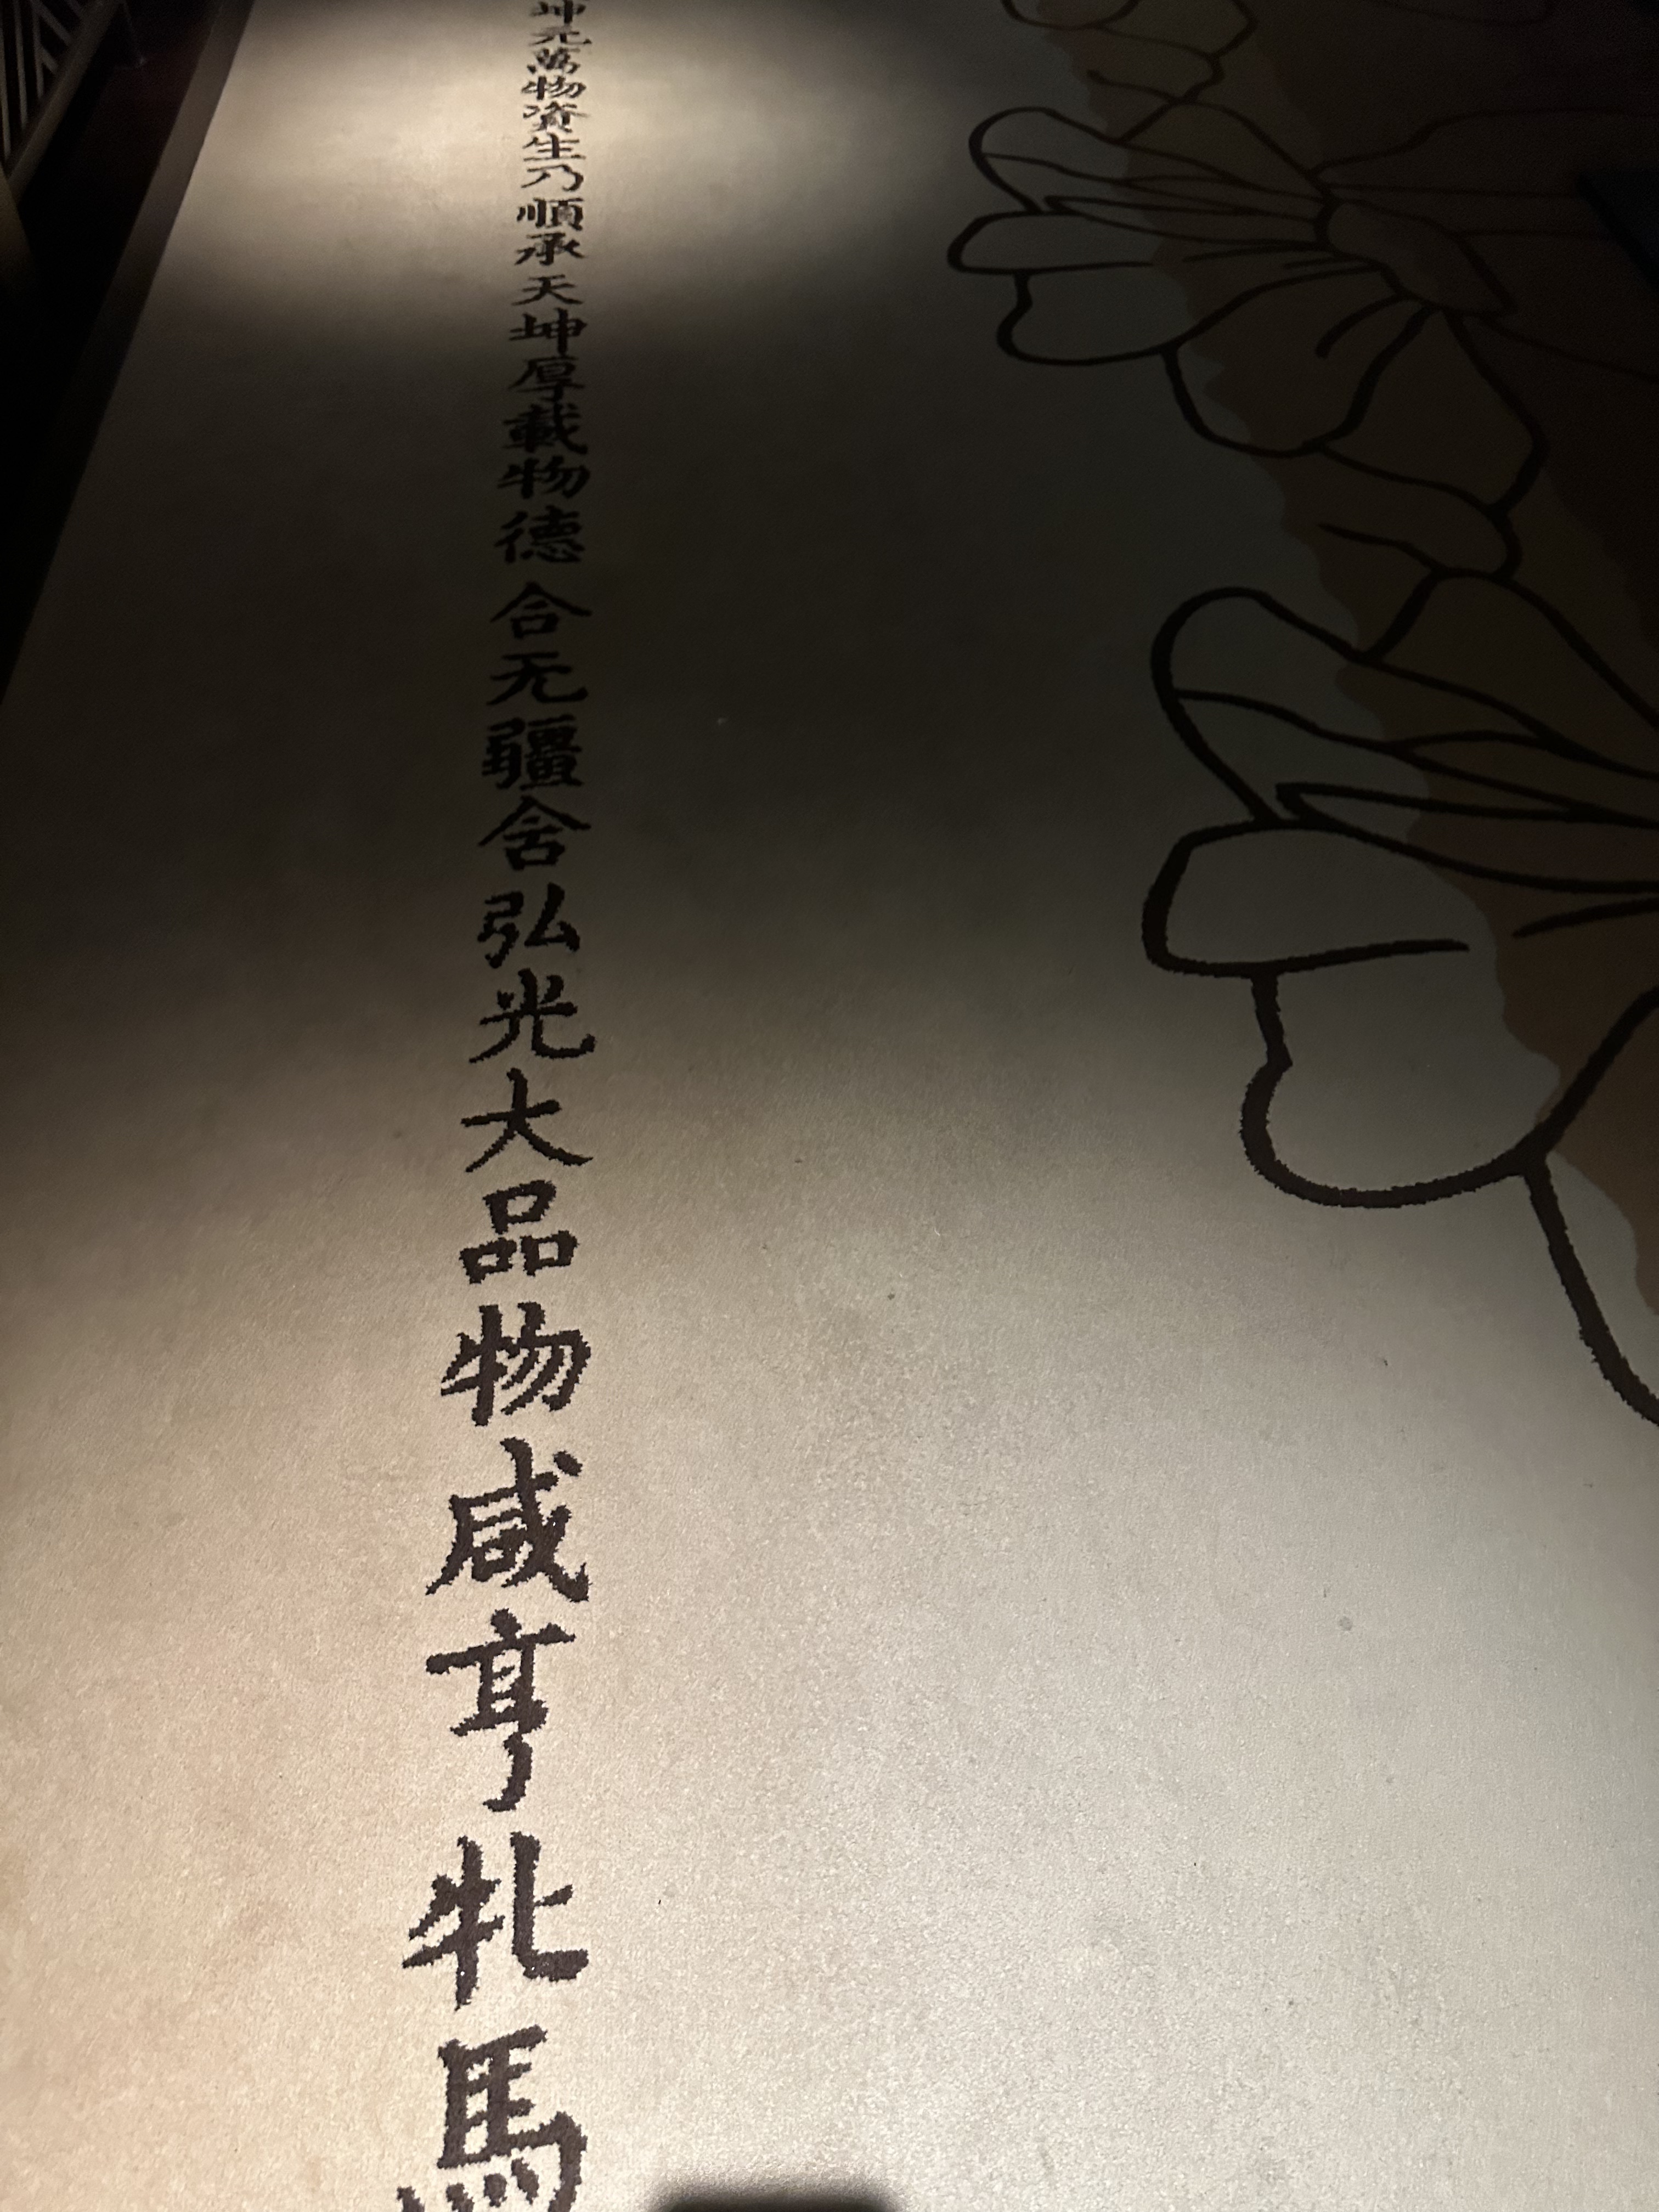 坤元萬物資生乃順承天坤厚載物德合无疆含弘光大品物咸亨牝馬